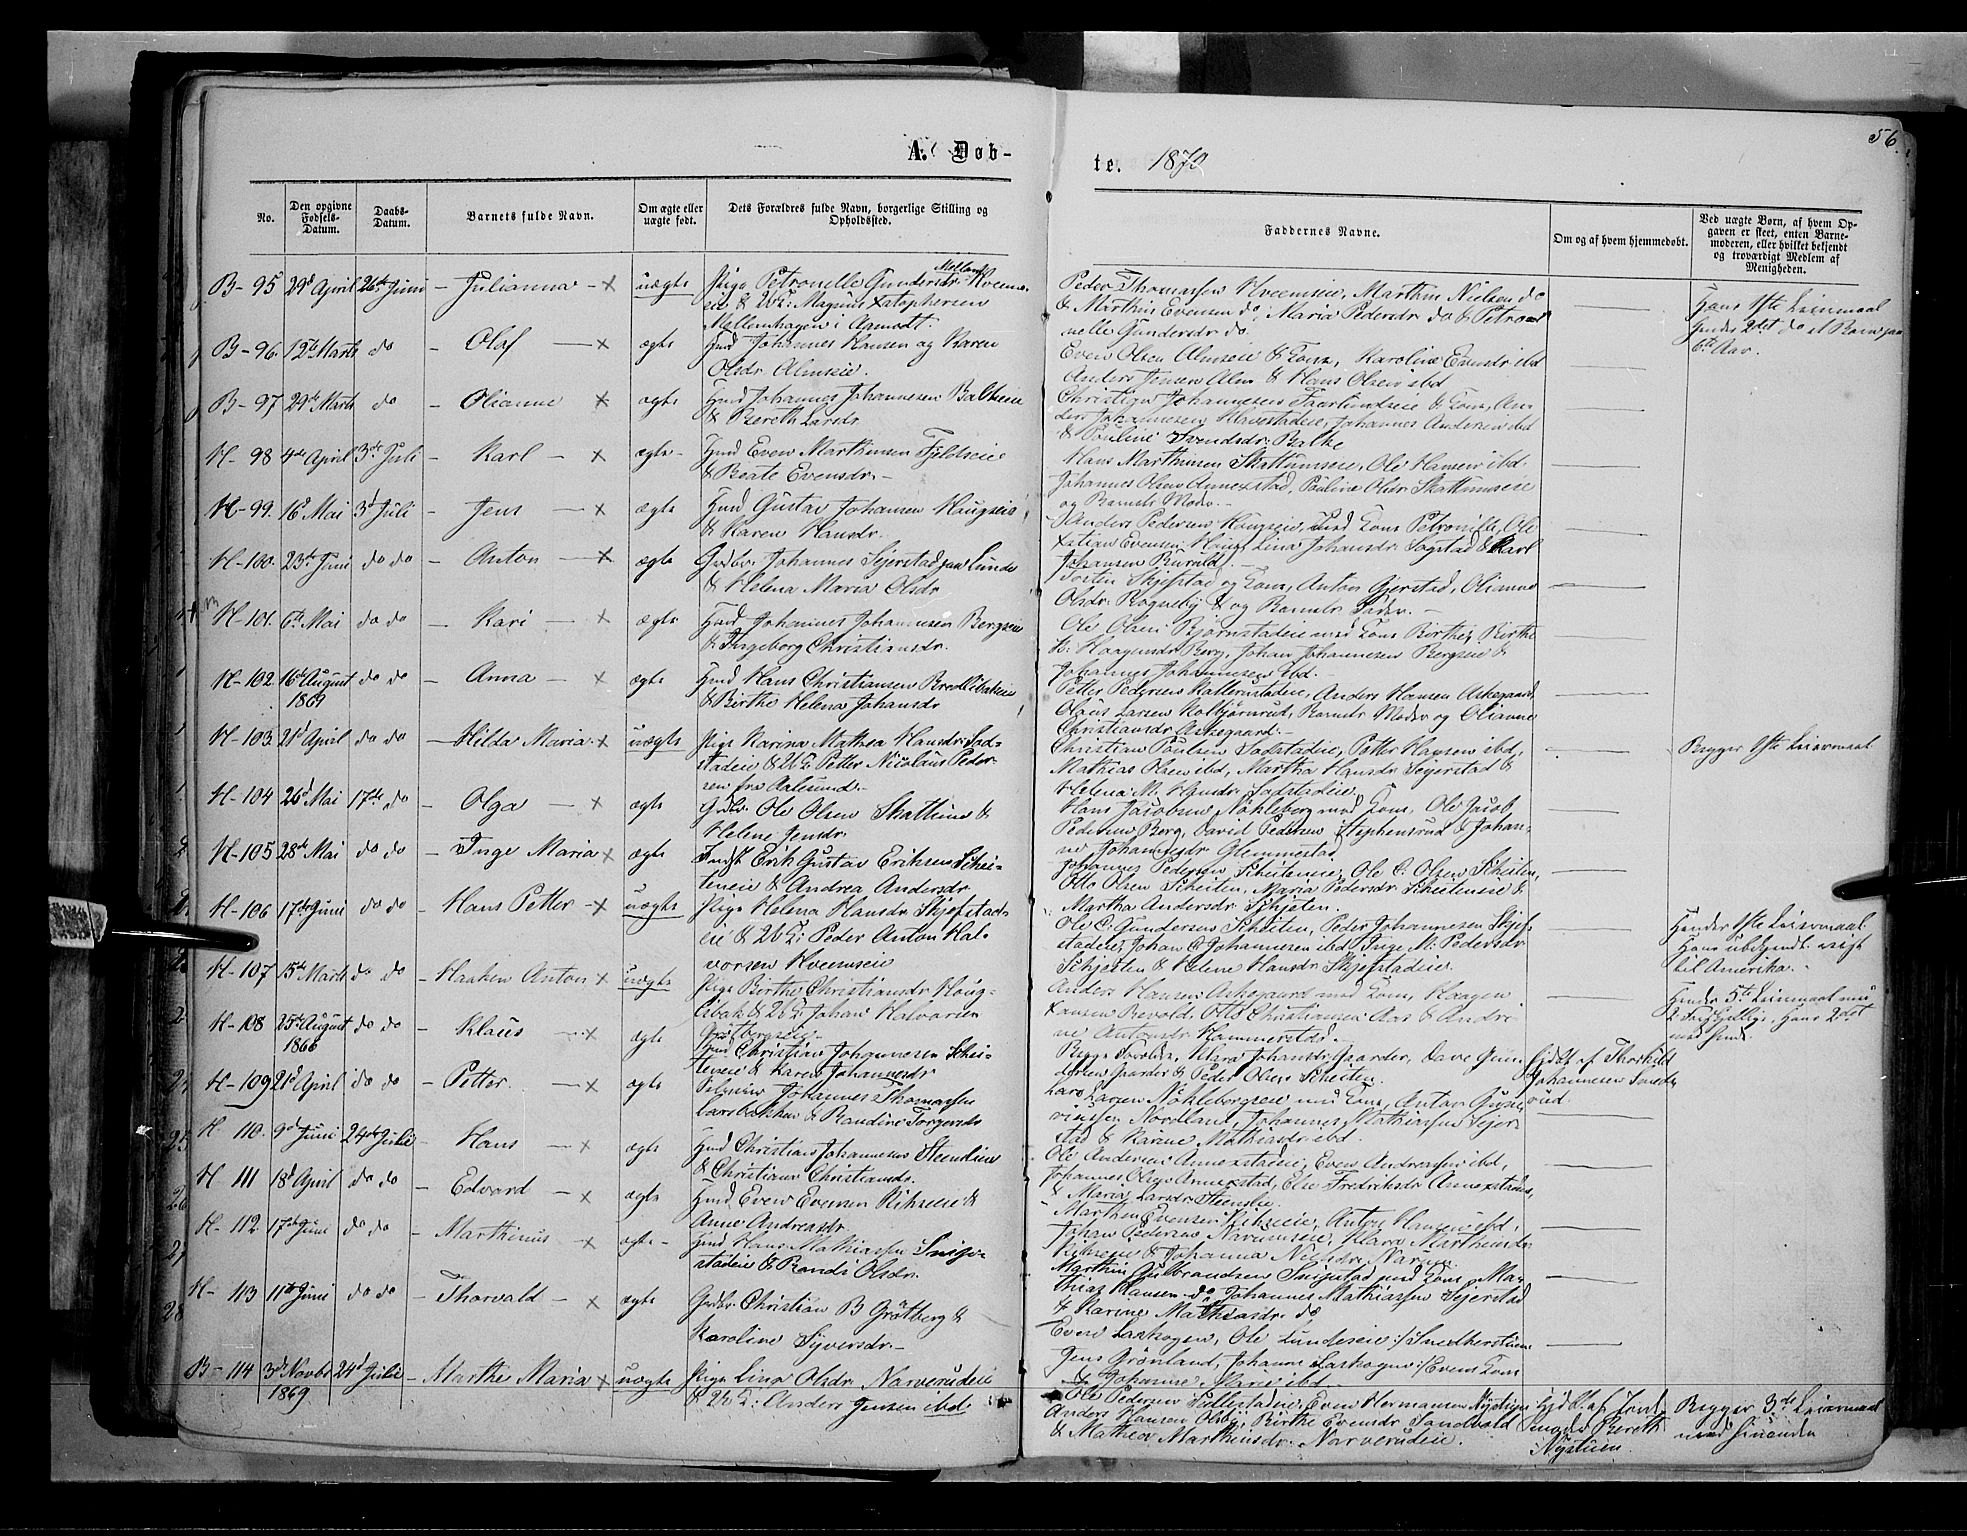 56.
A. Døb-
te. 1870
No.
Den opgivne Fødsels-Datum.
Daabs-Datum.
Barnets fulde Navn.
Om ægte eller uægte født.
Dets Forældres fulde Navn, borgerlige Stilling og Opholdssted.
Faddernes Navne.
Om og af hvem hjemmedøbt.
Ved uægte Børn, af hvem Opgaven er skeet, enten Barnemoderen, eller hvilket bekjendt og troværdigt Medlem af Menigheden.
B- 95 29d April 26de Juni - Julianna - x uægte Pige Petronelle Gundersdr
Mellemhagen i Aamodt.
Peder Thomassen Hveemseie, Marthin Nielsen do
& Marthin Evensen do, Maria Pedersdr do & Petro-
nelle Gundersdr do
Hans 1ste Leiermaal
Hendes 2det do
6te Aar.
B- 96 12te Marts do - Olaf - x ægte Gmd Johannes Hansen og Karen
Olsdr Almseie.
Even Olsen Almseie & Kone, Karoline Evensdr ibd
Anders Jensen Alm & Hans Olsen ibd
B- 97 29de Marts do - Olianne x ægte Hmd Johannes Johannesen Balkeeie
& Bereth Larsdr
Johannes Andersen ibd
& Pauline Svendsdr Balke
H- 98 4de April 3die Juli - Karl - x ægte - Hmd Even Marthinsen Fjeldseie
& Beate Evensdr. -
Hans Marthinsen Skattumseie, Ole Hansen ibd.
Johannes Olsen Annexstad, Pauline Olsdr Skattumseie
og Barnets Moder. -
H- 99. 16d Mai 3d Juli - Jens - x ægte Hmd Gustav Johansen Haugseie
& Karen Hansdr.
Anders Pedersen Haugseie med Kone Petronille, Ole
Lina Johansdr Sogstad & Karl
Johansen
H- 100. 23de Juni do do - Anton - x ægte Gdbr. Johannes Sejerstad
& Helena Maria Olsdr
Torsten Skjefstad og Kone, Anton Gjerstad, Olianne
Olsdr. Rogneby & og Barnets Fader. -
H- 101. 6te Mai do do - Kari - x ægte Hmd Johannes Johannesen Bergseie
& Ingeborg Christiansdr.
Ole Olsen Bjørnstadeie med Kone Birthe, Birthe
H. Haagensdr Berg, Johan Johannesen Bergseie &
Johannes Johannesen ibd. -
H- 102 16de August do do - Anna - x ægte Hmd Hans Christiansen
1869
& Birthe Helena Johansdr
Petter Pedersen Anders Hansen Askegaard,
Olaus Larsen Kolbjørnrud, Barnets Moder og Olianne
Christiansdr Askegaard. -
H- 103 21d April do do - Hilda Maria x uægte Pige Karina Mathea Hansdr Sad-
stadeie & UK: Petter Nicolaus Peder-
sen fra Aalesund. -
Christian Poulsen Sadstadeie, Petter Hansen ibd,
Mathias Olsen ibd, Martha Hansdr Sejerstad &
Helena M. Hansdr Sadstadeie.
Begges 1ste Leiermaal
H- 104 26d Mai 17de do - Olga - x ægte Gdbr. Ole Olsen Skattum &
Helene Jensdr
Hans Jacobsen Nøkleberg med Kone, Ole Jacob
Pedersen Berg, David Pedersen Stephensrud & Johan-
ne Johannesdr Glemmestad.
H- 105 28de Mai do do - Inge Maria x ægte Indst Erik Gustav Eriksen Schei-
teneie & Andrea Andersdr
Johannes Pedersen Scheteneie, Ole C. Olsen Scheiten,
Otto Olsen Scheiten, Maria Pedersdr Scheiteneie &
Martha Andersdr Schjeten.
H- 106 17de Juni do do - Hans Petter - x uægte Pige Helena Hansdr Skjefstad-
eie & UK: Peder Anton Hal-
vorsen Hveemseie
Ole C. Gundersen Scheiten, Peder Johannesen Skjef-
stadeie, Johan C Johannesen ibd Inge M. Pedersdr
Schjesten & Helene Hansdr Skjefstadeie.
Hendes 1ste Leiermaal
Hans ubekjendt. reist
til Amerika. -
H- 107 15de Marts do do - Haaken Anton x uægte Pige Birthe Christiansdr Haug-
& UK: Johan Halvorsen
Grøtbergseie -
Anders Hansen Askegaard med Kone, Haagen
Hansen Revold, Otto Christiansen Aas & Andri-
ne Antonsdr Hammerstad. -
Hendes 5te Leiermaal
Hans 2det
med hende.
H- 108 25de August do do - Klaus - x ægte Hmd Christian Johannesen Schei-
1866
teneie & Karen Johannesdr
Begge Forældre, Klara Johansdr Gaarder,
dersen Gaarder & Peder Olsen Scheiten.
Hjdbt af Thorkild
Johannesen
H- 109 21d April do do - Petter. - x ægte Johannes Thomassen
Larsbakken & Randine Torgersdr
Lars Larsen Nøklebergseie med Kone, Anton
Nordland, Johannes Mathiassen Sejer-
stad & Karine Mathiasdr ibd.
H- 110. 9d Juni 24de Juli - Hans - x ægte Hmd Christian Johannesen Steenslien
& Christiane Christiansdr.
Ole Andersen Annexstadeie, Even Andreassen ibd,
Johannes Olsen Annexstad, Else Fredriksdr Annexstadeie
& Maria Larsdr Steenslie.
H- 111 18d April do do - Edvard - x ægte Hmd Even Evensen Rikseie &
Anne Andreasdr.
Marthin Evensen Rikseie, Anton Hansen ibd,
Johan Pedersen Narumseie, Klara Marthinsdr
Rikseie & Johanna Nielsdr Narum.
H- 112 17de Juni do do - Marthinus - x ægte - Hmd Hans Mathiassen Snipe-
stadeie & Randi Olsdr.
Marthin Gulbrandsen Snipstad med Kone, Ma-
thias Hansen do, Johannes Mathiassen Sejerstad
& Karine Mathiasdr. do
H- 113 11te Juni do do - Thorvald - x ægte Gdbr. Christian B Grøtberg &
Karoline Syversdr. -
Even Laskogen, Ole Lundeseie
Jens Grønland, Johanne Laskogen Evens Kone
& Johanne Marie ibd. -
B- 114 3de Novbr 24d Juli - Marthe Maria x uægte Pige Lina Olsdr Narverudeie
1869
& UK: Anders Jensen ibd.
Ole Pedersen Even Hermansen
Anders Hansen Olsby, Birthe Evensdr Sandvold
& Mathea Marthinsdr. Narverudeie.
Hjdbt. af Jord-
Bereth
Nystuen.
Begges 3de Leiermaal
med hinanden